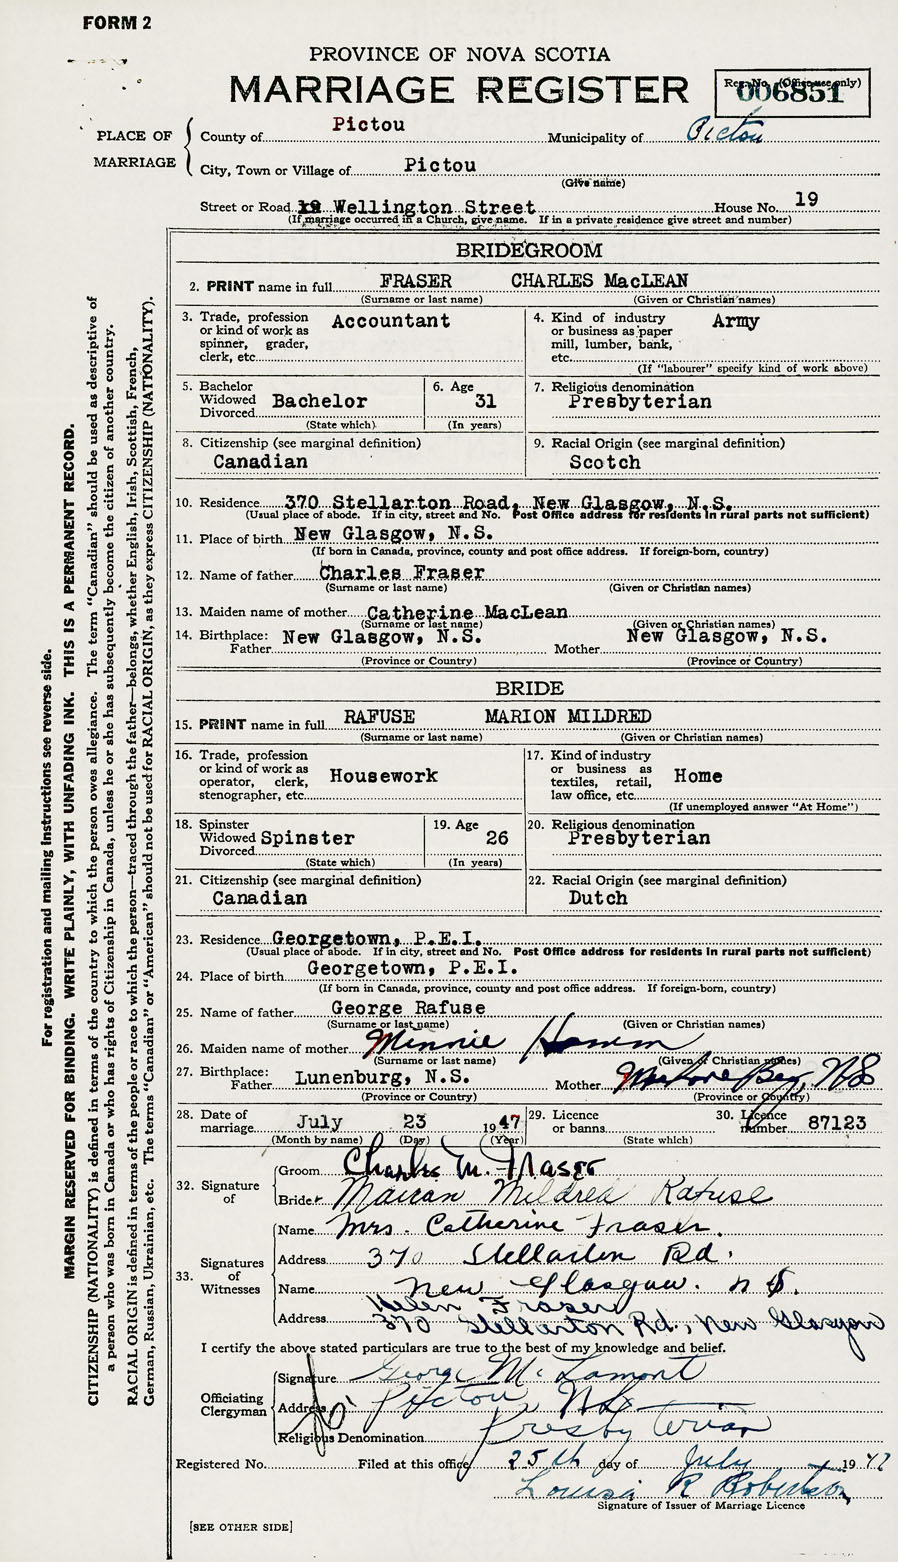 FORM 2
PROVINCE OF NOVA SCOTIA
MARRIAGE REGISTER
Reg. No. (Office use only)
006851
PLACE OF MARRIAGE
County of Pictou Municipality of Pictou
City, Town or Village of Pictou
(Give name)
Street or Road 19 Wellington Street House No. 19
(If marriage occurred in a Church, give name. If in a private residence give street and number)
BRIDEGROOM
2. PRINT name in full FRASER CHARLES MacLEAN
(Surname or last name) (Given or Christian names)
3. Trade, profession or kind of work as spinner, grader, clerk, etc. Accountant
4. Kind of industry or business as paper mill, lumber, bank, etc. Army
(If "labourer" specify kind of work above)
5. Bachelor Widowed Divorced Bachelor
(State which)
6. Age 31
(In years)
7. Religious denomination
Presbyterian
8. Citizenship (see marginal definition)
Canadian
9. Racial Origin (see marginal definition)
Scotch
10. Residence 370 Stellarton Road, New Glasgow, N.S.
(Usual place of abode. If in city, street and No. Post Office address for residents in rural parts not sufficient)
11. Place of birth New Glasgow, N.S.
(If born in Canada, province, county and post office address. If foreign-born, country)
12. Name of father Charles Fraser
(Surname or last name) (Given or Christian names)
13. Maiden name of mother Catherine MacLean
(Surname or last name) (Given or Christian names)
14. Birthplace: Father New Glasgow, N.S. Mother New Glasgow, N.S.
(Province or Country) (Province or Country)
BRIDE
15. PRINT name in full RAFUSE MARION MILDRED
(Surname or last name) (Given or Christian names)
16. Trade, profession or kind of work as operator, clerk, stenographer, etc. Housework
17. Kind of industry or business as textiles, retail, law office, etc. Home
(If unemployed answer "At Home")
18. Spinster Widowed Divorced Spinster
(State which)
19. Age 26
(In years)
20. Religious denomination
Presbyterian
21. Citizenship (see marginal definition)
Canadian
22. Racial Origin (see marginal definition)
Dutch
23. Residence Georgetown, P.E.I.
(Usual place of abode. If in city, street and No. Post Office address for residents in rural parts not sufficient)
24. Place of birth Georgetown, P.E.I.
(If born in Canada, province, county and post office address. If foreign-born, country)
25. Name of father George Rafuse
(Surname or last name) (Given or Christian names)
26. Maiden name of mother Minnie Hamm
(Surname or last name) (Given or Christian names)
27. Birthplace: Father Lunenburg, N.S. Mother Bay, NS
(Province or Country) (Province or Country)
28. Date of marriage July 23 1947
(Month by name) (Day) (Year)
29. Licence or banns
(State which)
30. Licence number 87123
32. Signature of
Groom Charles M. Fraser
Bride Marion Mildred Rafuse
33. Signatures of Witnesses
Name Mrs. Catherine Fraser.
Address 370 Stellarton Rd.
Name New Glasgow. N S.
Helen Fraser
Address 370 Stellarton Rd., New Glasgow
I certify the above stated particulars are true to the best of my knowledge and belief.
Officiating Clergyman
Signature George McLamont
Address Pictou NS
Religious Denomination Presbyterian
Registered No. Filed at this office 25th day of July 1947
Louisa R Robertson
Signature of Issuer of Marriage Licence
[SEE OTHER SIDE]
For registration and mailing instructions see reverse side.
MARGIN RESERVED FOR BINDING. WRITE PLAINLY, WITH UNFADING INK. THIS IS A PERMANENT RECORD.
CITIZENSHIP (NATIONALITY) is defined in terms of the country to which the person owes allegiance. The term "Canadian" should be used as descriptive of
a person who was born in Canada or who has rights of Citizenship in Canada, unless he or she has subsequently become the citizen of another country.
RACIAL ORIGIN is defined in terms of the people or race to which the person—traced through the father—belongs, whether English, Irish, Scottish, French,
German, Russian, Ukrainian, etc. The terms "Canadian" or "American" should not be used for RACIAL ORIGIN, as they express CITIZENSHIP (NATIONALITY).